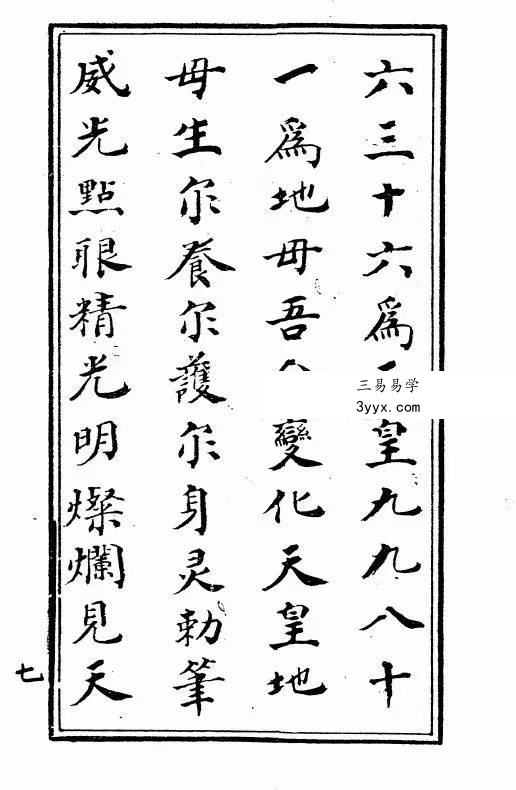 六三十六爲皇九九八十
一爲地毋吾變化天皇地
毋生尔養尔護尔身灵勅筆
威光點眼精光明燦爛見天
七
三易易学
3yyx.com